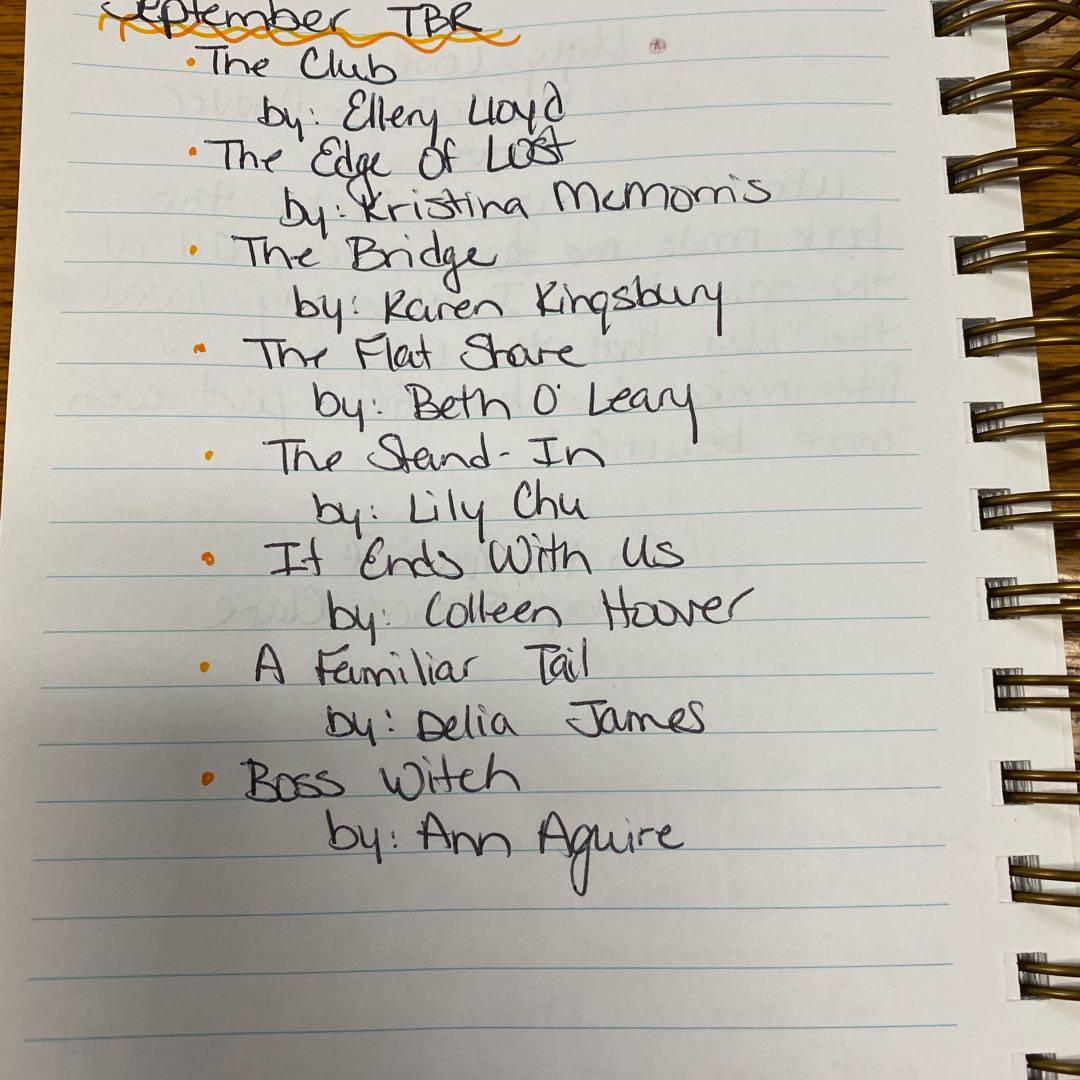 September TBR
The Club
by: Ellery Lloyd
The Edge Of Lost
by: Kristina McMorris
The Bridge
by: Karen Kingsbury
The Flat Share
by: Beth O'Leary
The Stand-In
by: Lily Chu
It Ends With Us
by: Colleen Hoover
A Familiar Tail
by: Delia James
Boss Witch
by: Ann Aguire